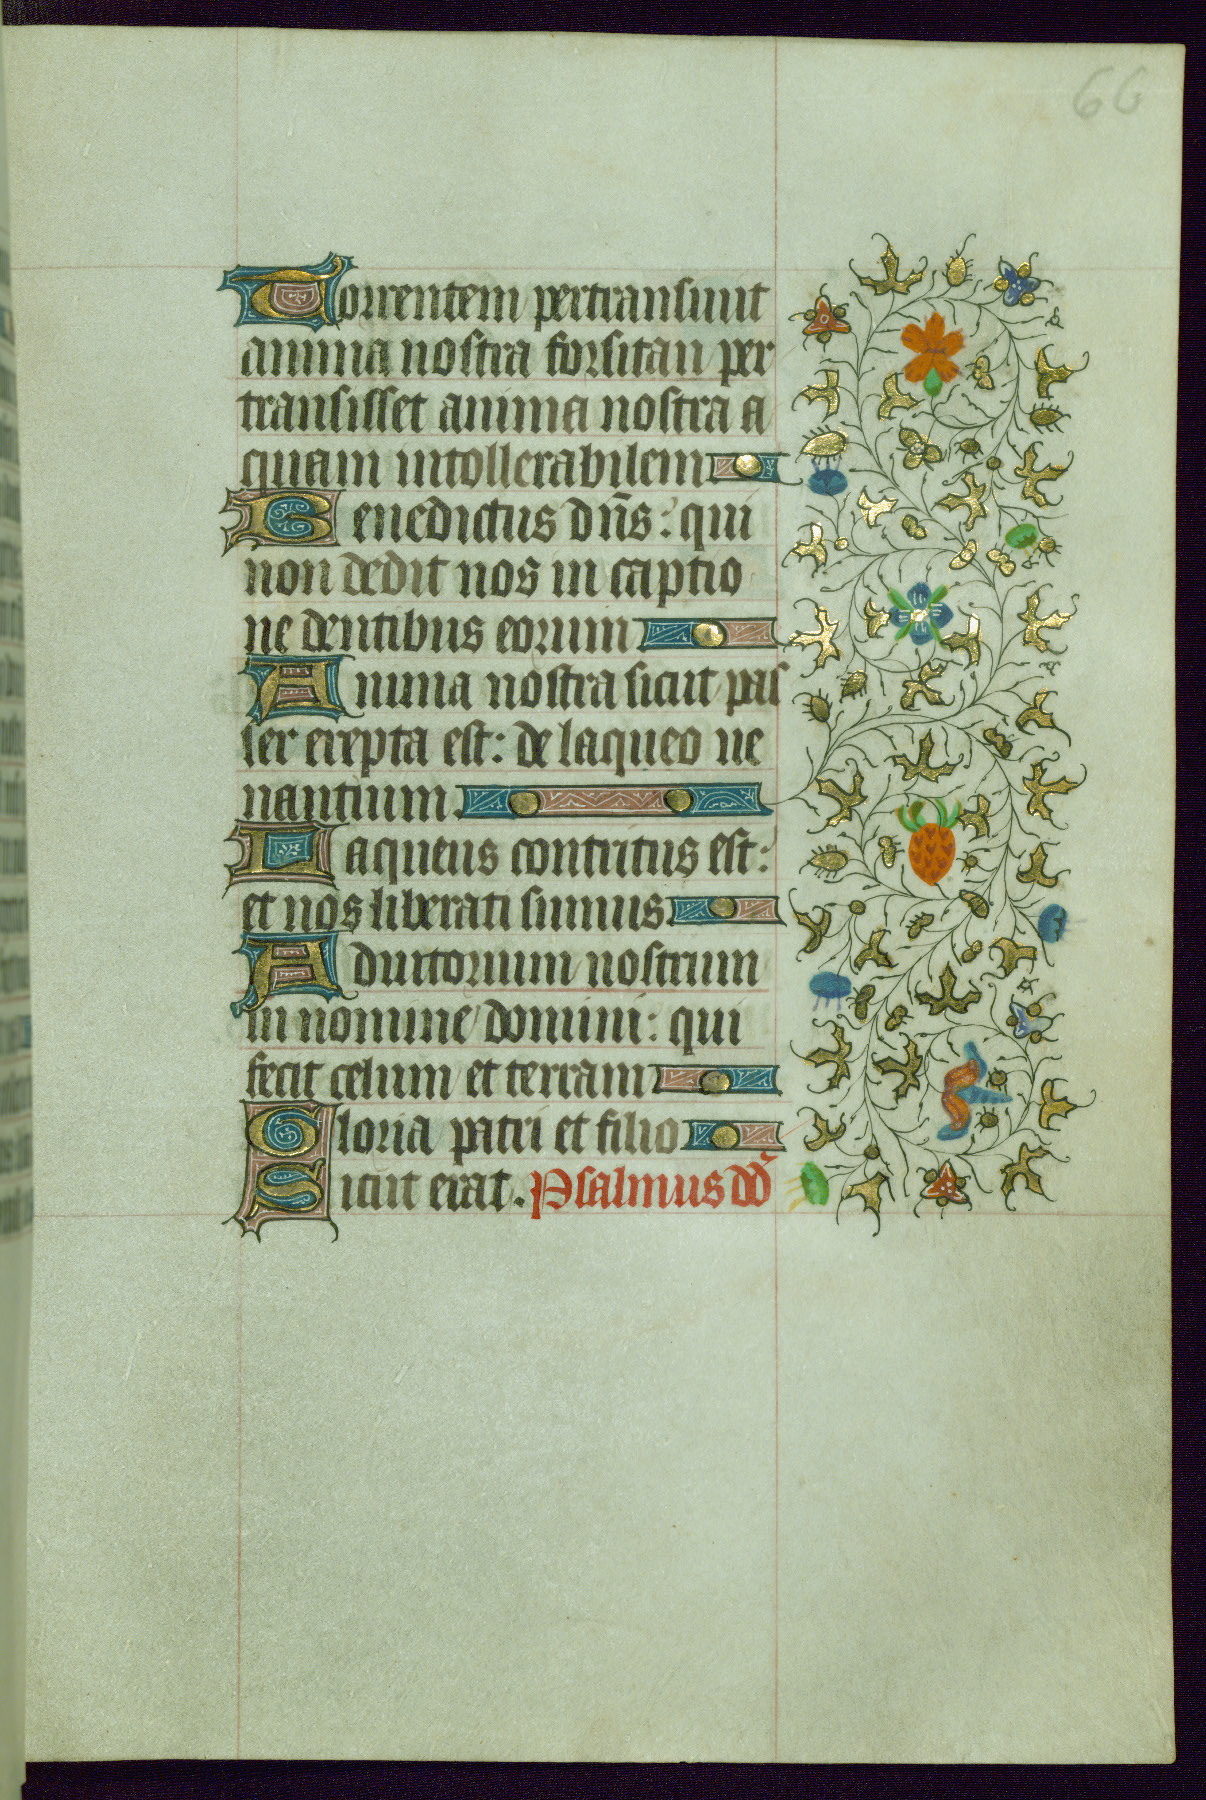 66
Torrentem pertransiuit
anima nostra forsitan per
transisset anima nostra a
quam intollerabilem
Benedictus dn̄s: qui
non dedit nos in captio
ne dentibus eorum
Anima nostra sicut pas
ser erepta est: de laqueo ue
nantium
Laqueus contritus est:
et nos liberati sumus
Adiutorium nostrum
in nomine domini: qui
fecit celum et terram
Gloria patri et filio
Sicut erat. Psalmus dd̄